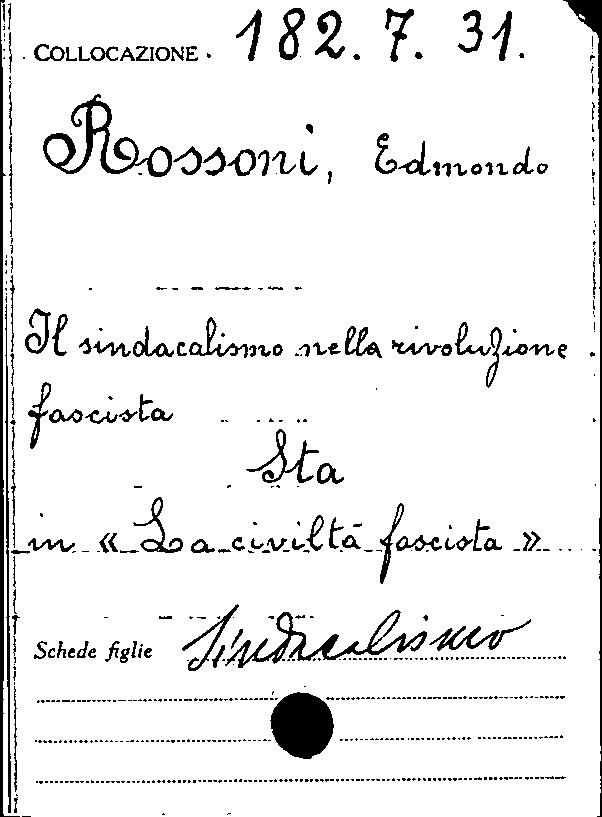 COLLOCAZIONE . 182. 7. 31.
Rossoni, Edmondo
Il sindacalismo nella rivoluzione
fascista
Sta
in « La civiltà fascista »
Schede figlie Sindacalismo